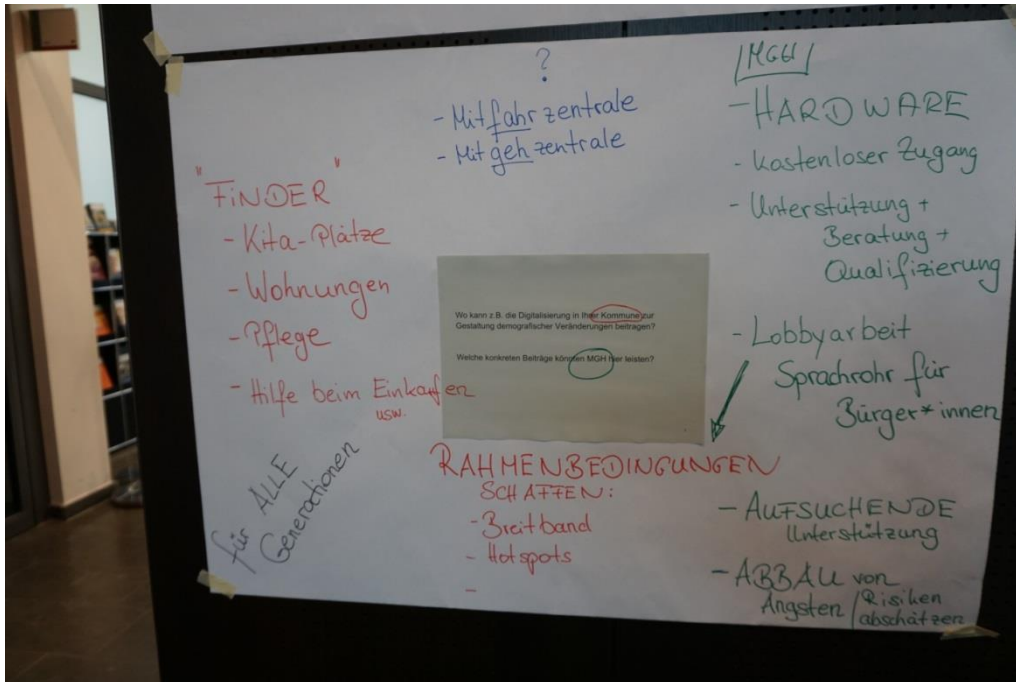 ?
- Mitfahrzentrale
- Mitgehzentrale
"FINDER"
- Kita-Plätze
- Wohnungen
- Pflege
- Hilfe beim Einkaufen
usw.
für ALLE
Generationen
Wo kann z.B. die Digitalisierung in Ihrer Kommune zur
Gestaltung demografischer Veränderungen beitragen?
Welche konkreten Beiträge könnten MGH hier leisten?
RAHMENBEDINGUNGEN
SCHAFFEN:
- Breitband
- Hotspots
-
MGH
- HARDWARE
- kostenloser Zugang
- Unterstützung +
Beratung +
Qualifizierung
- Lobbyarbeit
Sprachrohr für
Bürger*innen
- AUFSUCHENDE
Unterstützung
- ABBAU von
Ängsten / Risiken
abschätzen